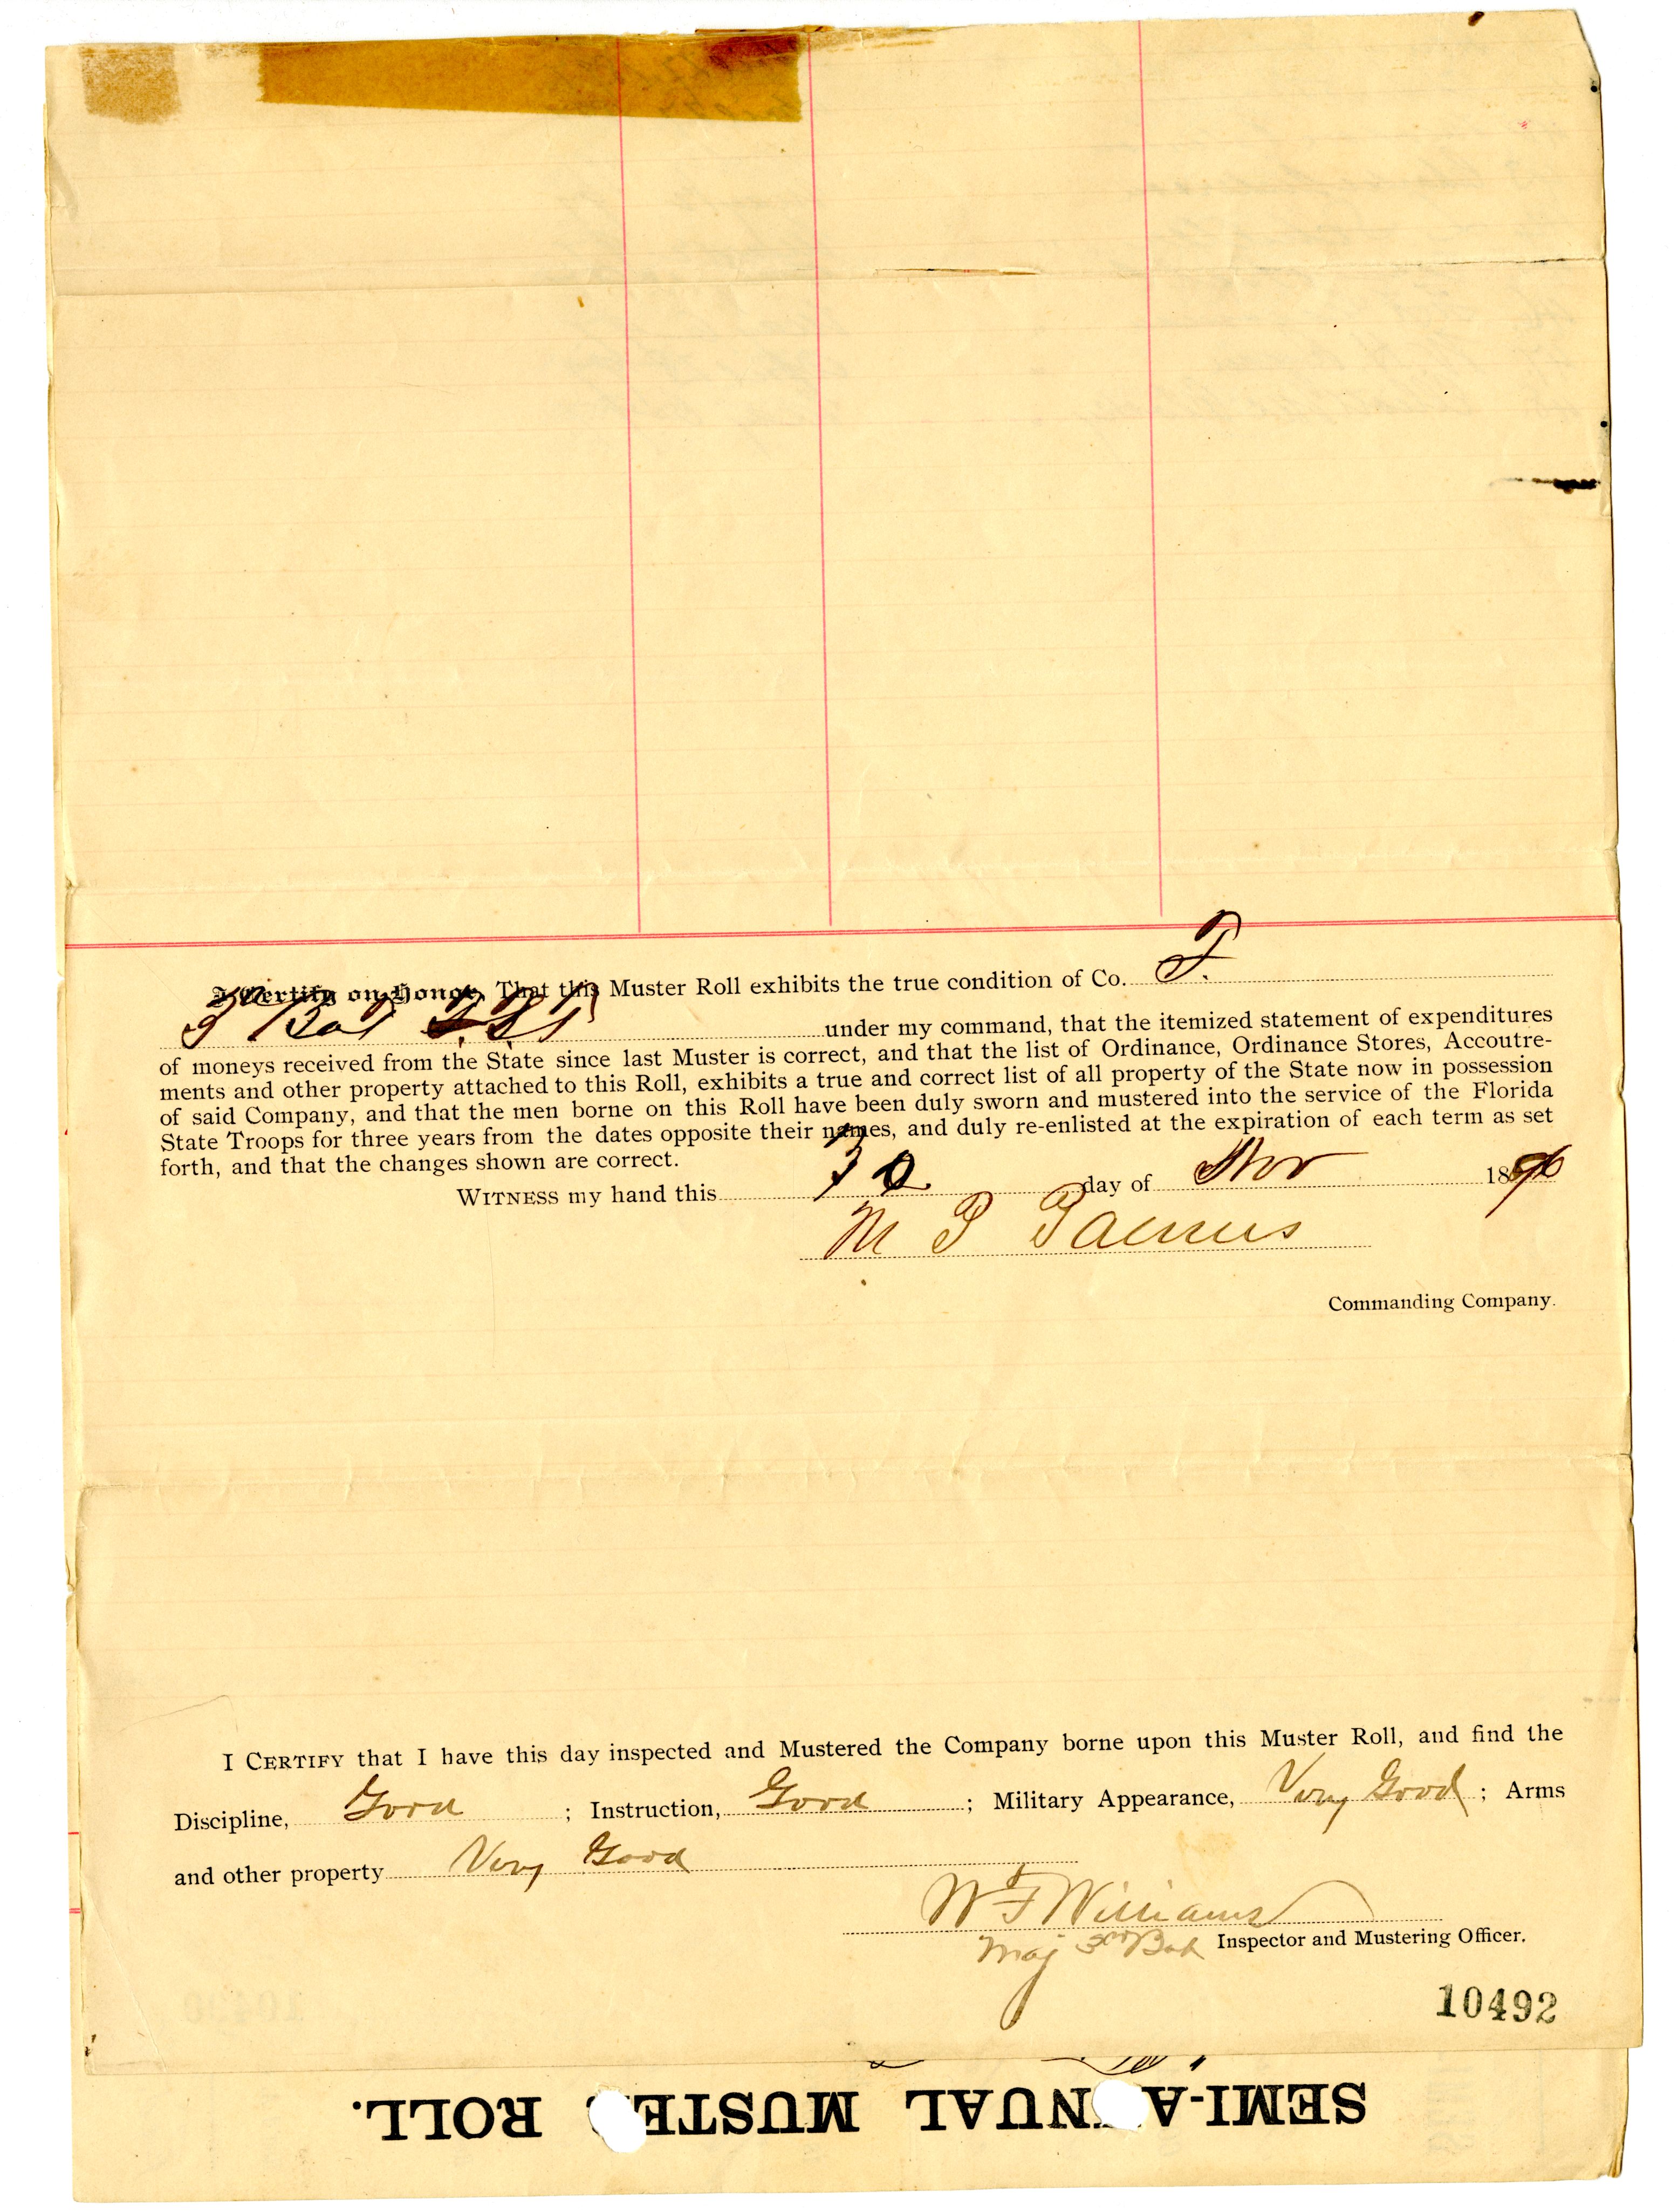 I Certify on Honor, That this Muster Roll exhibits the true condition of Co. F.
3rd Bat F.S.T. under my command, that the itemized statement of expenditures
of moneys received from the State since last Muster is correct, and that the list of Ordinance, Ordinance Stores, Accoutre-
ments and other property attached to this Roll, exhibits a true and correct list of all property of the State now in possession
of said Company, and that the men borne on this Roll have been duly sworn and mustered into the service of the Florida
State Troops for three years from the dates opposite their names, and duly re-enlisted at the expiration of each term as set
forth, and that the changes shown are correct.
WITNESS my hand this 30 day of Nov 1890
M P
Commanding Company.
I CERTIFY that I have this day inspected and Mustered the Company borne upon this Muster Roll, and find the
Discipline, Good ; Instruction, Good ; Military Appearance, Very Good ; Arms
and other property Very Good
W F Williams
Maj 3rd Bat Inspector and Mustering Officer.
10492
SEMI-ANNUAL MUSTER ROLL.